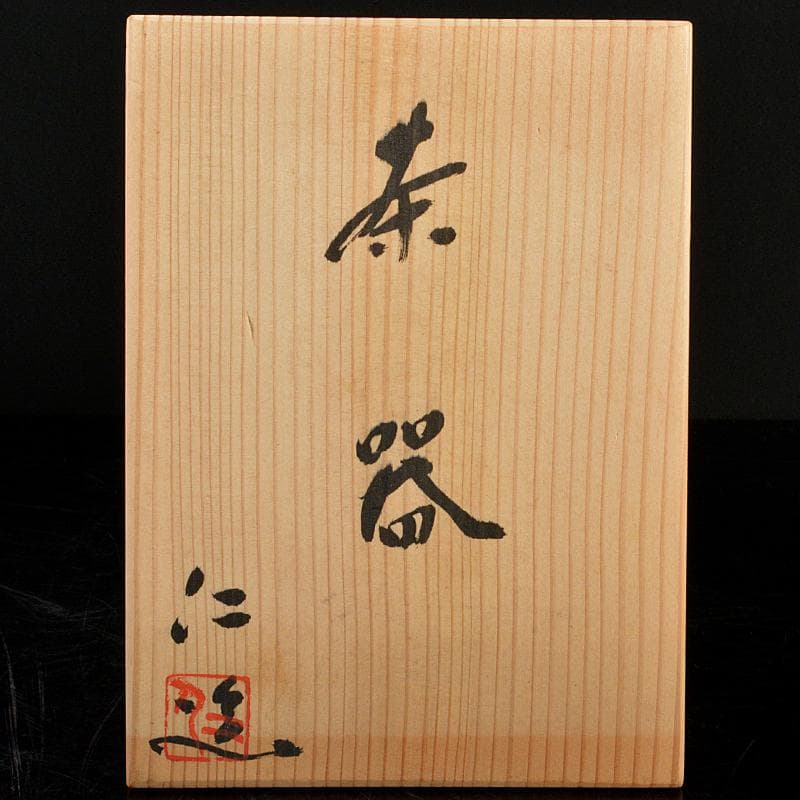 茶器
仁